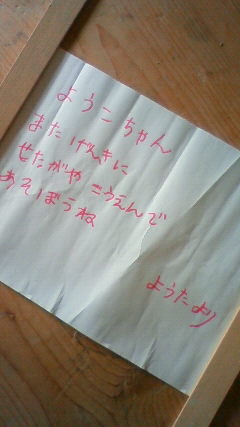 ようこちゃん
またげんきに
せたがやこうえんで
あそぼうね
ようたより